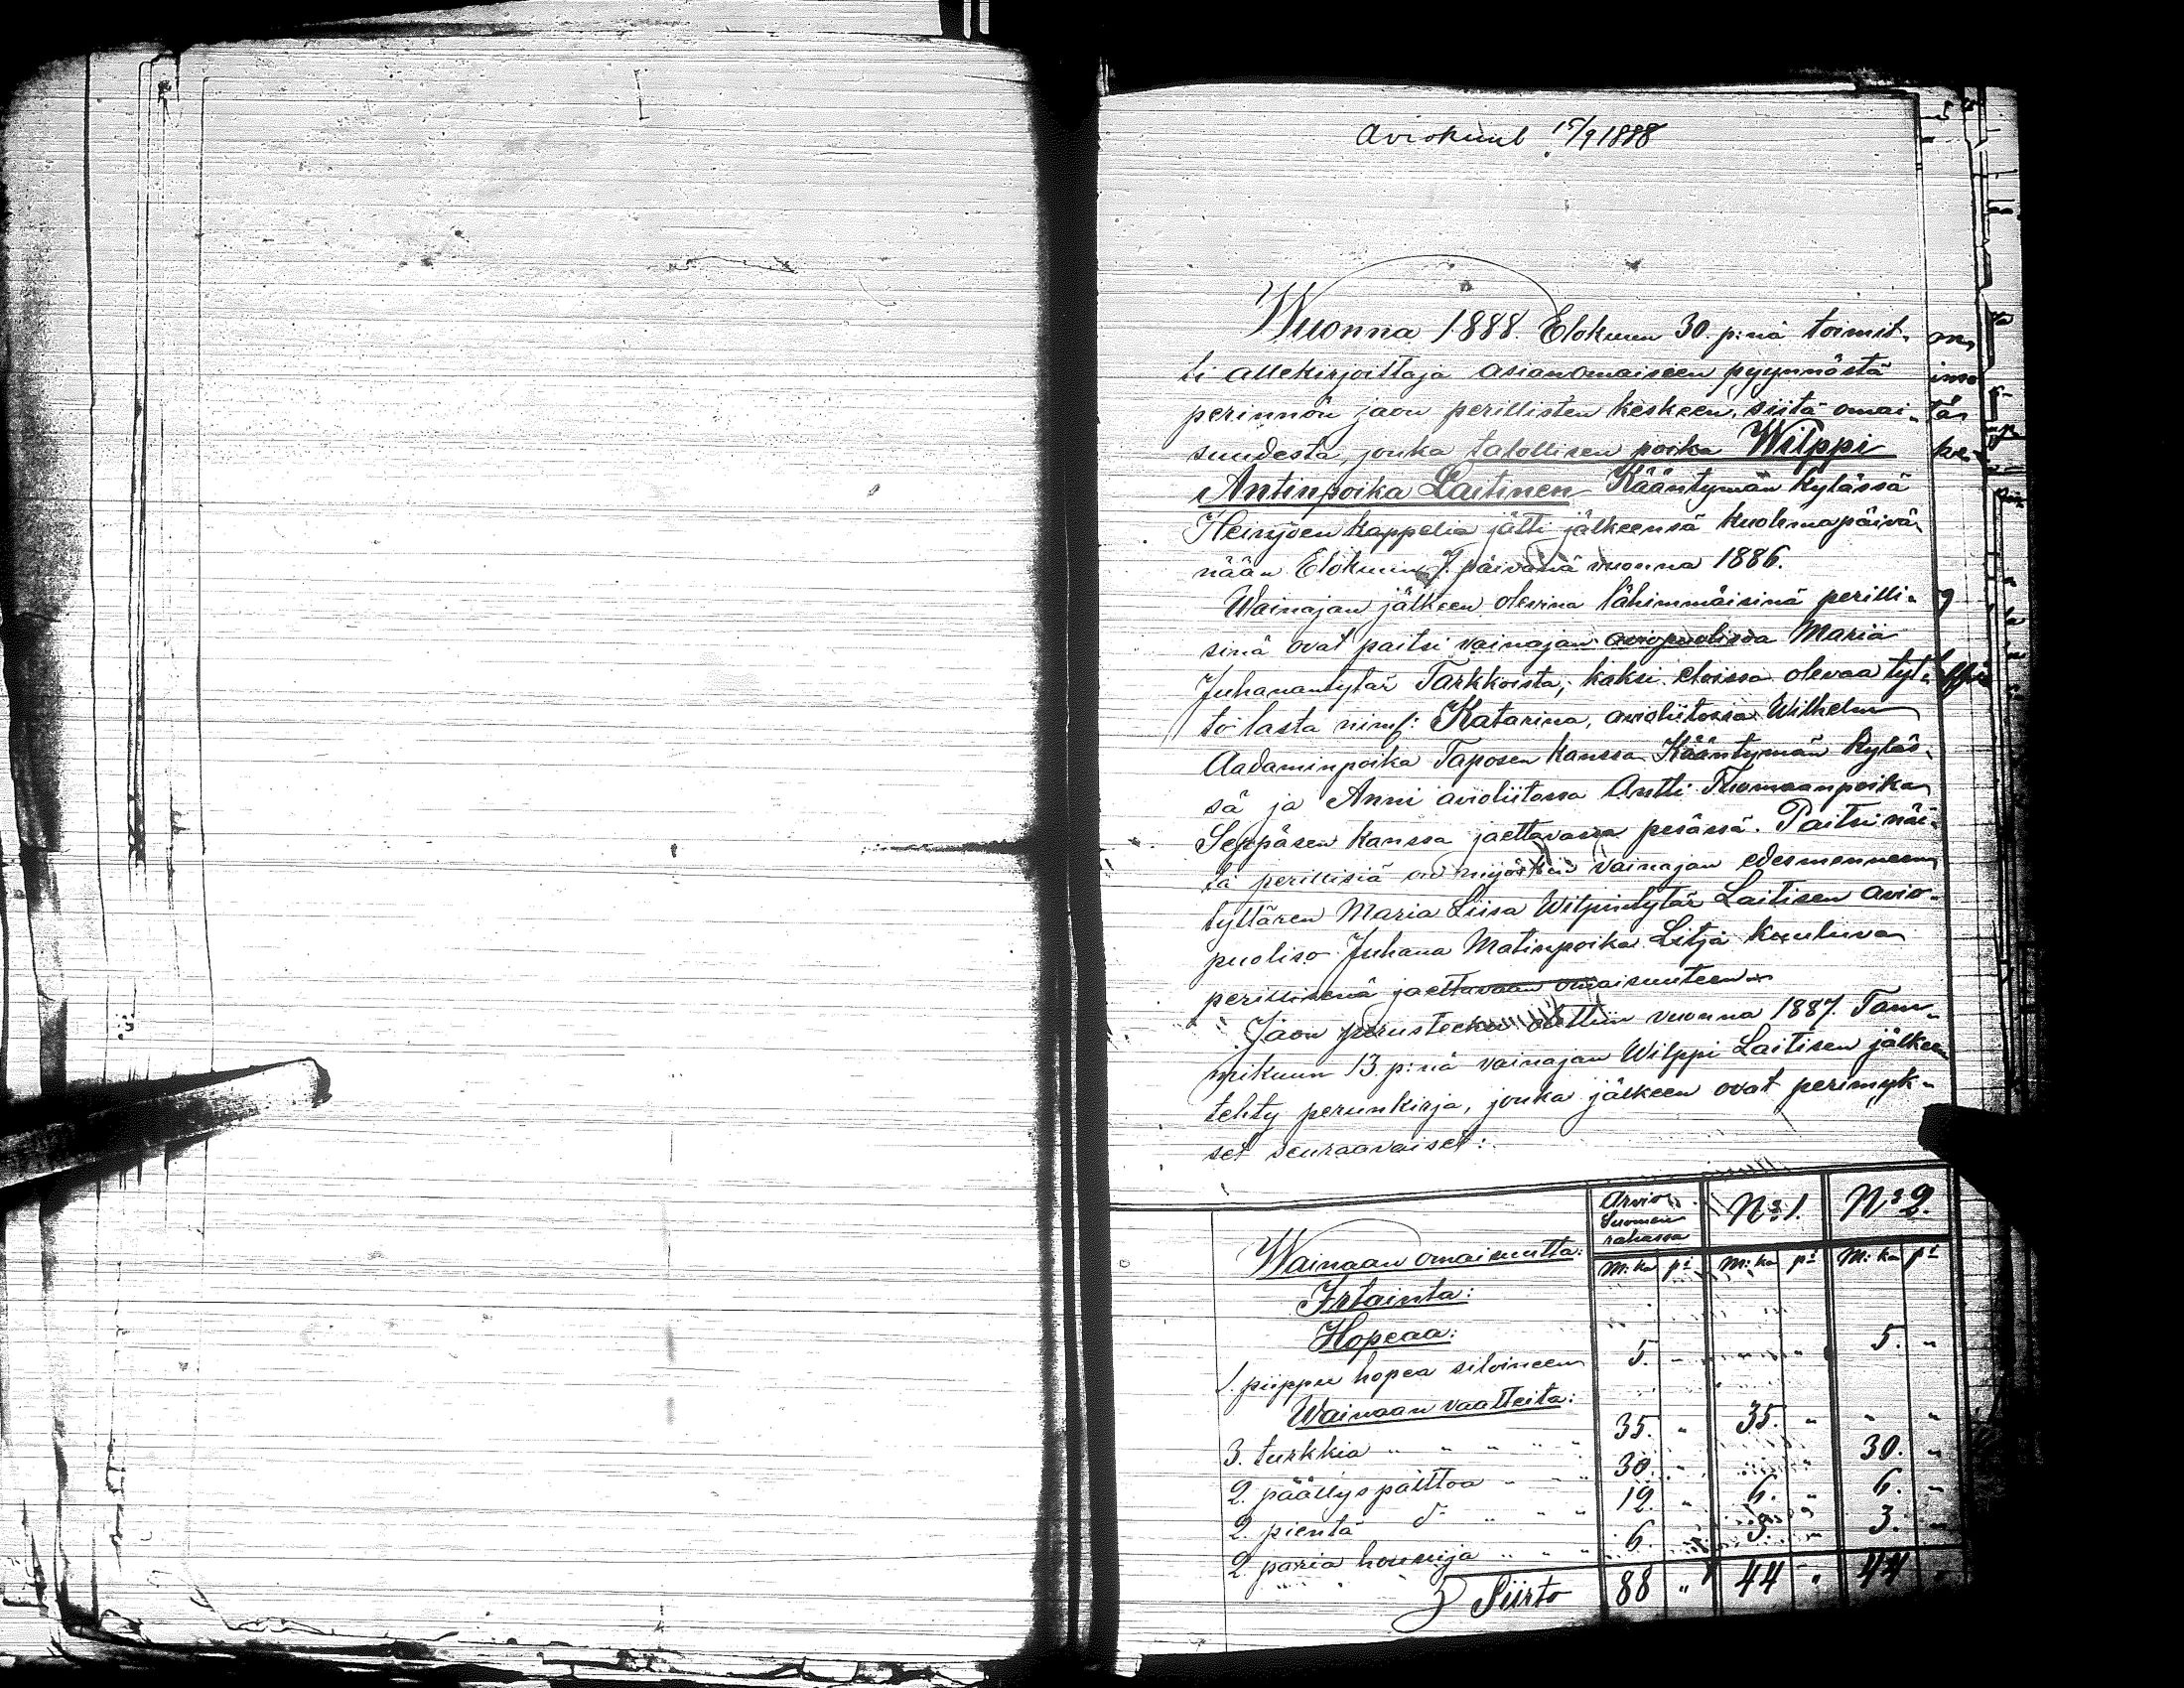 15/9 1888
Wuonna 1888. Elokuun 30. p:nä toimit-
ti allekirjoittaja asianomaiseen pyynnöstä
perinnön jaon perillisten keskeen, siitä omai-
suudesta, jonka talollisen poika Wilppi
Antinpoika Laitinen Kääntymän kylässä
Heinjoen kappelia jätti jälkeensä kuolinapäivä-
nään Elokuun 7. päivänä vuonna 1886.
Wainajan jälkeen olevina lähimmäisinä perilli-
sinä ovat paitsi vainajan aviopuolisoa Maria
Juhanantytär Tarkkoista, kaksi eloissa olevaa tyt-
tö lasta nimf: Katarina, avioliitossa Wilhelm
Aadaminpoika Taposen kanssa Kääntymän kyläs-
sä ja Anni avioliitossa Antti Tuomaanpoika
Seppäsen kanssa jaettavassa pesässä. Paitsi näi-
tä perillisiä on myöskin vainajan edesmenneen
tyttären Maria Liisa Wilpintytär Laitisen avio-
puoliso Juhana Matinpoika Litja kuuluva
perillisenä jaettavaan omaisuuteen
Jaon perusteeksi otettiin vuonna 1887. Tam-
mikuun 13. p:nä vainajan Wilppi Laitisen jälkeen
tehty perunkirja, jonka jälkeen ovat perimyk-
set seuraavaiset:
Arvio Suomen rahassa N:o 1. N:o 2.
Wainaan omaisuutta: M:ka pi M:ka pi M:ka pi
Irtainta:
Hopeaa:
1. piippu hopea siloineen 5. " " " 5. "
Wainaan vaatteita:
3. turkkia " " " " " 35. " 35. " " "
2. päällyspalttoa " " " 30. " " " 30. "
2. pientä d:o " " " 12. " 6. " 6. "
2. paria housuja " " " 6. " 3. " 3. "
Siirto 88 " 44 " 44 "